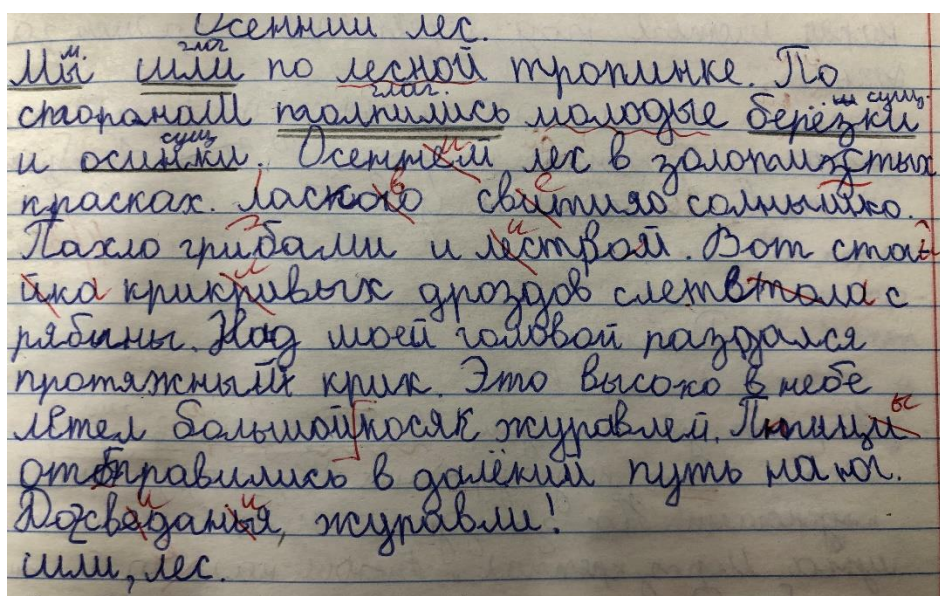 Осенний лес.
Мы шли по лесной тропинке. По
сторонам толпились молодые берёзки
и осинки. Осеннем лес в золотизстых
красках. Ласкоко свитило солнышко.
Пахло грибами и лествой. Вот ста
йка крикривых дроздов слетела с
рябины. Над моей головой раздался
протяжный крик. Это высоко в небе
летел большой косяк журавлей. Птици
отправились в далёкий путь на юг.
До сведанья, журавли!
шли, лес.